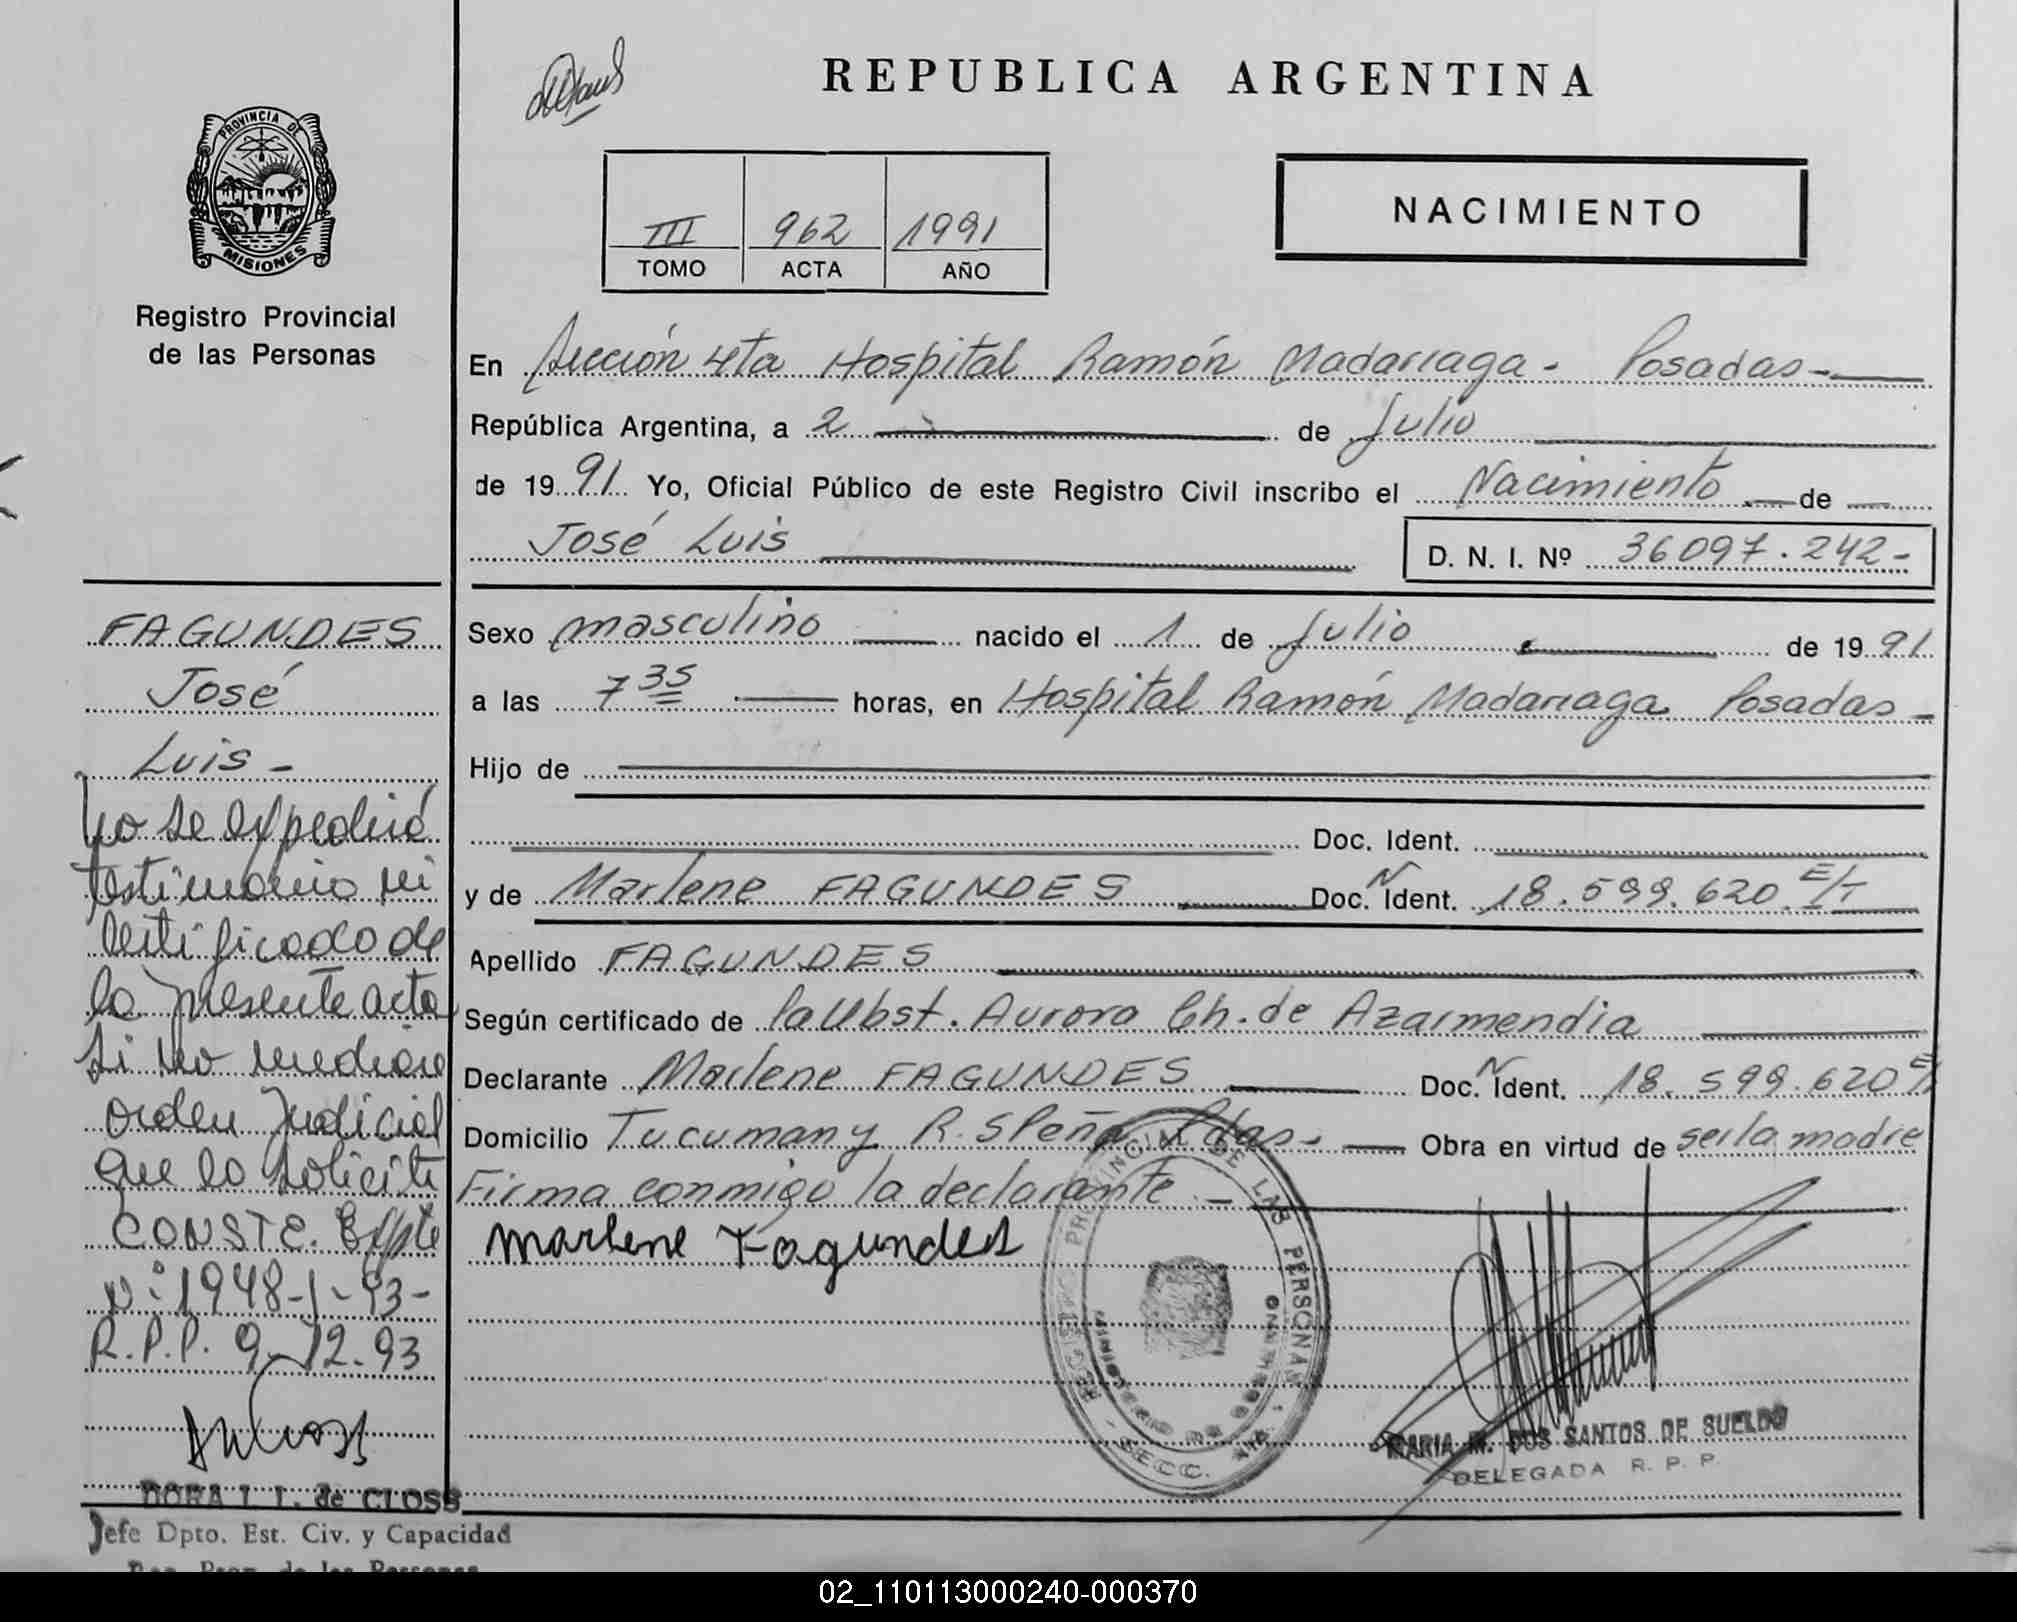 REPUBLICA ARGENTINA
PROVINCIA DE
MISIONES
Registro Provincial
de las Personas
III 962 1991
TOMO ACTA AÑO
NACIMIENTO
En Sección 4ta Hospital Ramón Madariaga - Posadas -
República Argentina, a 2 de Julio
de 1991 Yo, Oficial Público de este Registro Civil inscribo el Nacimiento de
José Luis D. N. I. Nº 36097.242-
Sexo masculino nacido el 1 de Julio de 1991
a las 7 35 horas, en Hospital Ramón Madariaga Posadas -
Hijo de
Doc. Ident.
y de Marlene FAGUNDES Doc. N Ident. 18.599.620 E/T
Apellido FAGUNDES
Según certificado de la Obst. Aurora Ch. de Azarmendia
Declarante Marlene FAGUNDES Doc. N Ident. 18.599.620
Domicilio Tucuman y R. S Peña Pdas - Obra en virtud de ser la madre
Firma conmigo la declarante. -
Marlene Fagundes
REGISTRO PROVINCIAL DE LAS PERSONAS
SECC.
MARIA M. DOS SANTOS DE SUELDO
DELEGADA R. P. P.
FAGUNDES
José
Luis -
No se expedirá
testimonio ni
certificado de
la presente acta
si no mediare
orden Judicial
que lo solicite
CONSTE. Expte
Nº 1948-1-93-
R.P.P. 9-12-93
DORA I. L. de CLOSS
Jefe Dpto. Est. Civ. y Capacidad
Reg. Prov. de las Personas
02_110113000240-000370